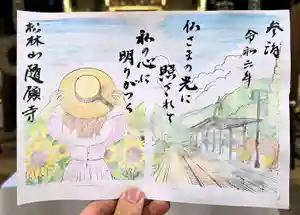 参拝
令和六年
仏さまの光に
照らされて
私の心に
明りがつく
松林山随願寺